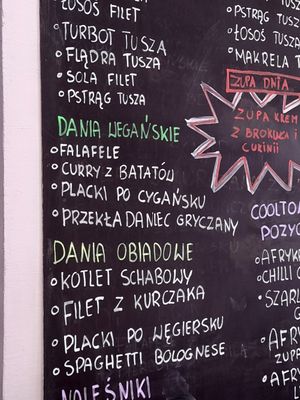 ŁOSOŚ FILET
TURBOT TUSZA
FLĄDRA TUSZA
SOLA FILET
PSTRĄG TUSZA
DANIA WEGAŃSKIE
FALAFELE
CURRY Z BATATÓW
PLACKI PO CYGAŃSKU
PRZEKŁADANIEC GRYCZANY
DANIA OBIADOWE
KOTLET SCHABOWY
FILET Z KURCZAKA
PLACKI PO WĘGIERSKU
SPAGHETTI BOLOGNESE
NALEŚNIKI
PSTRĄG TUSZ
ŁOSOŚ TUSZ
MAKRELA T
ZUPA DNIA
ZUPA KREM
Z BROKUŁA I
CUKINII
COOLTO
POZYC
AFRYK
CHILLI
SZARL
AFR
ZUPA
AFRY